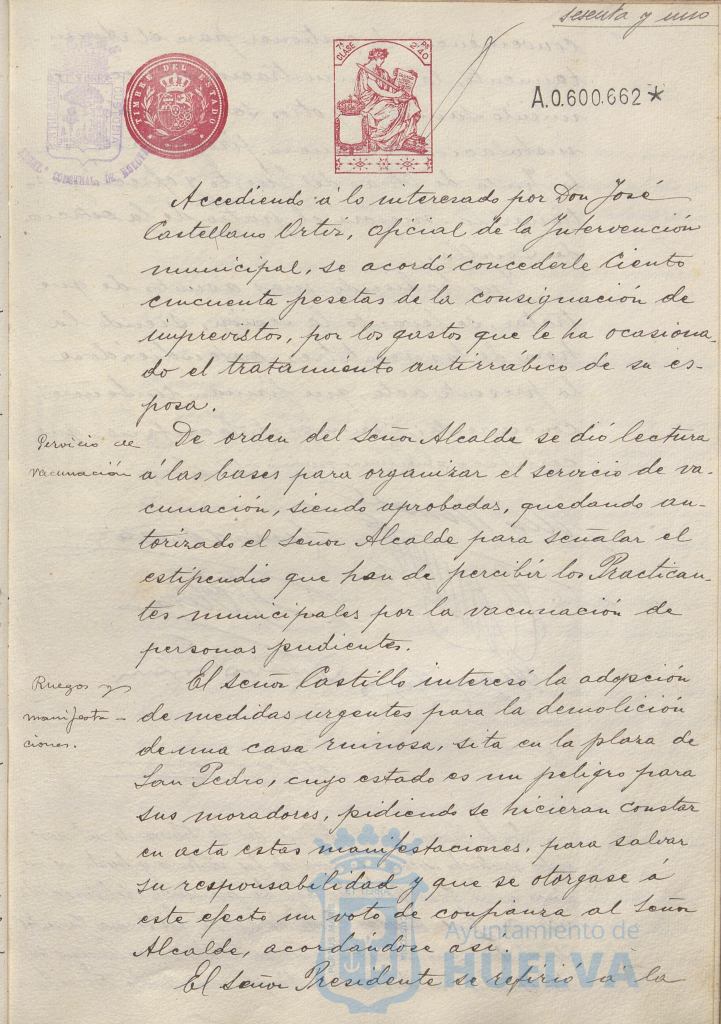 sesenta y uno
TIMBRE DEL ESTADO
7ª CLASE
Ps 2'40
A.0.600.662*
Accediendo á lo interesado por Don José
Castellano Ortiz, oficial de la Intervención
municipal, se acordó concederle Ciento
cincuenta pesetas de la consignación de
imprevistos, por los gastos que le ha ocasiona-
do el tratamiento antirrábico de su es-
posa.
Servicio de
vacunación
De orden del Señor Alcalde se dió lectura
á las bases para organizar el servicio de va-
cunación, siendo aprobadas, quedando au-
torizado el Señor Alcalde para señalar el
estipendio que han de percibir los Practican-
tes municipales por la vacunación de
personas pudientes.
Ruegos y
manifesta-
ciones.
El señor Castillo interesó la adopción
de medidas urgentes para la demolición
de una casa ruinosa, sita en la plaza de
San Pedro, cuyo estado es un peligro para
sus moradores, pidiendo se hicieran constar
en acta estas manifestaciones, para salvar
su responsabilidad y que se otorgase á
este efecto un voto de confianza al Señor
Alcalde, acordándose así.
El señor Presidente se refirió á la
Ayuntamiento de
HUELVA